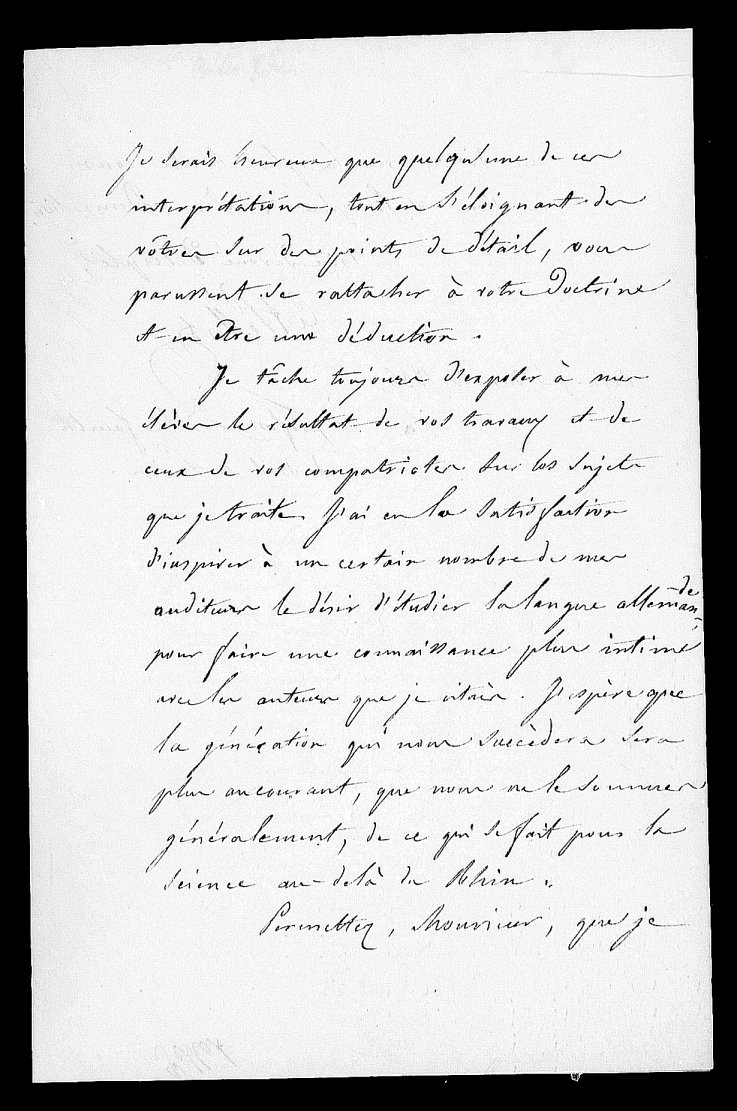 Je serais heureux que quelqu'une de ces
interprétations, tout en s'éloignant des
vôtres sur des points de détail, vous
parussent se rattacher à votre Doctrine
et en être une déduction.
Je tâche toujours d'exposer à mes
élèves le résultat de vos travaux et de
ceux de vos compatriotes sur les sujets
que je traite. J'ai eu la satisfaction
d'inspirer à un certain nombre de mes
auditeurs le désir d'étudier la langue allemande
pour faire une connaissance plus intime
avec les auteurs que je citais. J'espère que
la génération qui nous succèdera sera
plus au courant, que nous ne le sommes
généralement, de ce qui se fait pour la
science au-delà du Rhin.
Permettez, Monsieur, que je